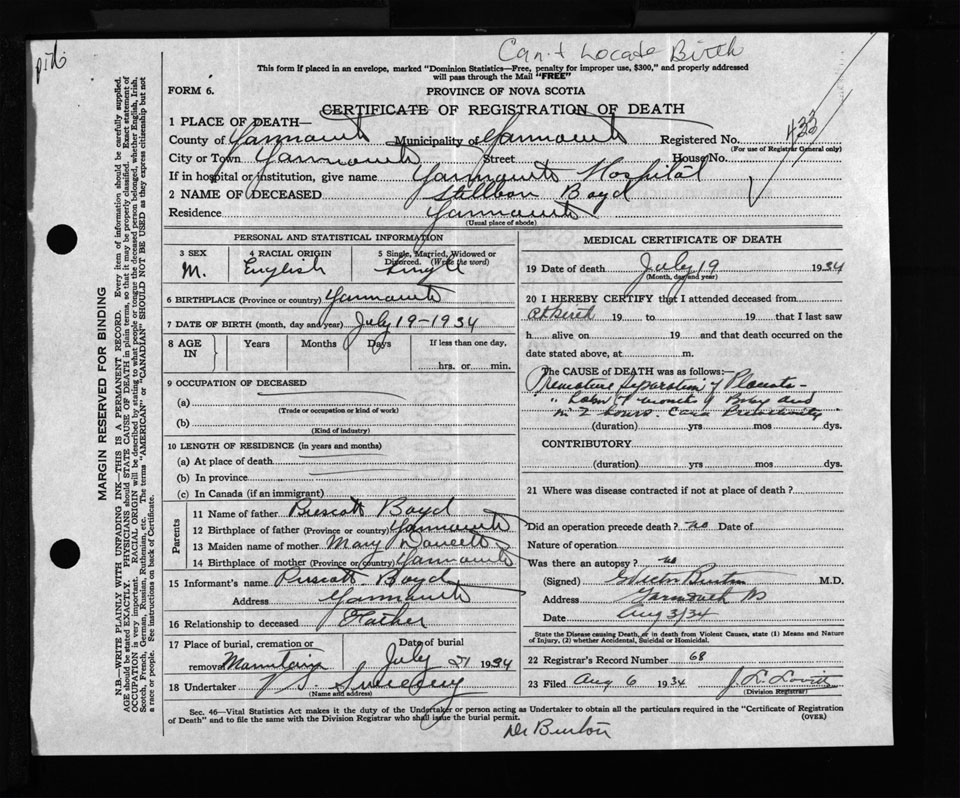 Can't Locate Birth
This form if placed in an envelope, marked "Dominion Statistics—Free, penalty for improper use, $300," and properly addressed
will pass through the Mail "FREE"
FORM 6.
PROVINCE OF NOVA SCOTIA
CERTIFICATE OF REGISTRATION OF DEATH
1 PLACE OF DEATH—
County of Yarmouth Municipality of Yarmouth Registered No.
433
(For use of Registrar General only)
City or Town Yarmouth Street House No.
If in hospital or institution, give name Yarmouth Hospital
2 NAME OF DECEASED Stillborn Boyd
Residence Yarmouth
(Usual place of abode)
PERSONAL AND STATISTICAL INFORMATION
3 SEX
M.
4 RACIAL ORIGIN
English
5 Single, Married, Widowed or
Divorced. (Write the word)
Single
6 BIRTHPLACE (Province or country) Yarmouth
7 DATE OF BIRTH (month, day and year) July 19-1934
8 AGE
IN
Years Months Days
If less than one day,
hrs. or min.
9 OCCUPATION OF DECEASED
(a)
(Trade or occupation or kind of work)
(b)
(Kind of industry)
10 LENGTH OF RESIDENCE (in years and months)
(a) At place of death
(b) In province
(c) In Canada (if an immigrant)
Parents
11 Name of father Prescott Boyd
12 Birthplace of father (Province or country) Yarmouth
13 Maiden name of mother Mary Doucett
14 Birthplace of mother (Province or country) Yarmouth
15 Informant's name Prescott Boyd
Address Yarmouth
16 Relationship to deceased Father
17 Place of burial, cremation or
removal
Date of burial
July 21 1934
18 Undertaker V. S. Sweeny
(Name and address)
MEDICAL CERTIFICATE OF DEATH
19 Date of death July 19 1934
(Month, day and year)
20 I HEREBY CERTIFY that I attended deceased from
19 to 19 that I last saw
h alive on 19 and that death occurred on the
date stated above, at m.
The CAUSE of DEATH was as follows:—
Premature Separation of Placenta
(duration) yrs mos dys.
CONTRIBUTORY
(duration) yrs mos dys.
21 Where was disease contracted if not at place of death?
Did an operation precede death? no Date of
Nature of operation
Was there an autopsy? no
(Signed) Burton M.D.
Address Yarmouth NS
Date Aug 3/34
State the Disease causing Death, or in death from Violent Causes, state (1) Means and Nature
of Injury, (2) whether Accidental, Suicidal or Homicidal.
22 Registrar's Record Number 68
23 Filed Aug 6 1934 J. L. Lovitt
(Division Registrar)
Sec. 46—Vital Statistics Act makes it the duty of the Undertaker or person acting as Undertaker to obtain all the particulars required in the "Certificate of Registration
of Death" and to file the same with the Division Registrar who shall issue the burial permit.
(OVER)
Dr Burton
MARGIN RESERVED FOR BINDING
N.B.—WRITE PLAINLY WITH UNFADING INK—THIS IS A PERMANENT RECORD. Every item of information should be carefully supplied.
AGE should be stated EXACTLY. PHYSICIANS should STATE CAUSE OF DEATH in plain terms, so that it may be properly classified. Exact statement of
OCCUPATION is very important. RACIAL ORIGIN will be described by stating to what people or tongue the deceased person belonged, whether English, Irish,
Scotch, French, German, Russian, Ruthenian, etc. The terms "AMERICAN" or "CANADIAN" SHOULD NOT BE USED as they express citizenship but not
a race or people. See Instructions on back of Certificate.